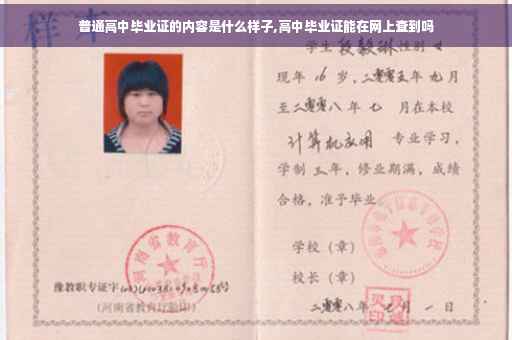 普通高中毕业证的内容是什么样子,高中毕业证能在网上查到吗
样本
学生段毅琳性别女
现年 16 岁,二零零五年九月
至二零零八年七 月在本校
计算机应用 专业学习,
学制三年,修业期满,成绩
合格,准予毕业
学校(章)
校长(章)
二零零八年七月一日
河南省教育厅
豫教职专证字
(河南省教育厅验印)